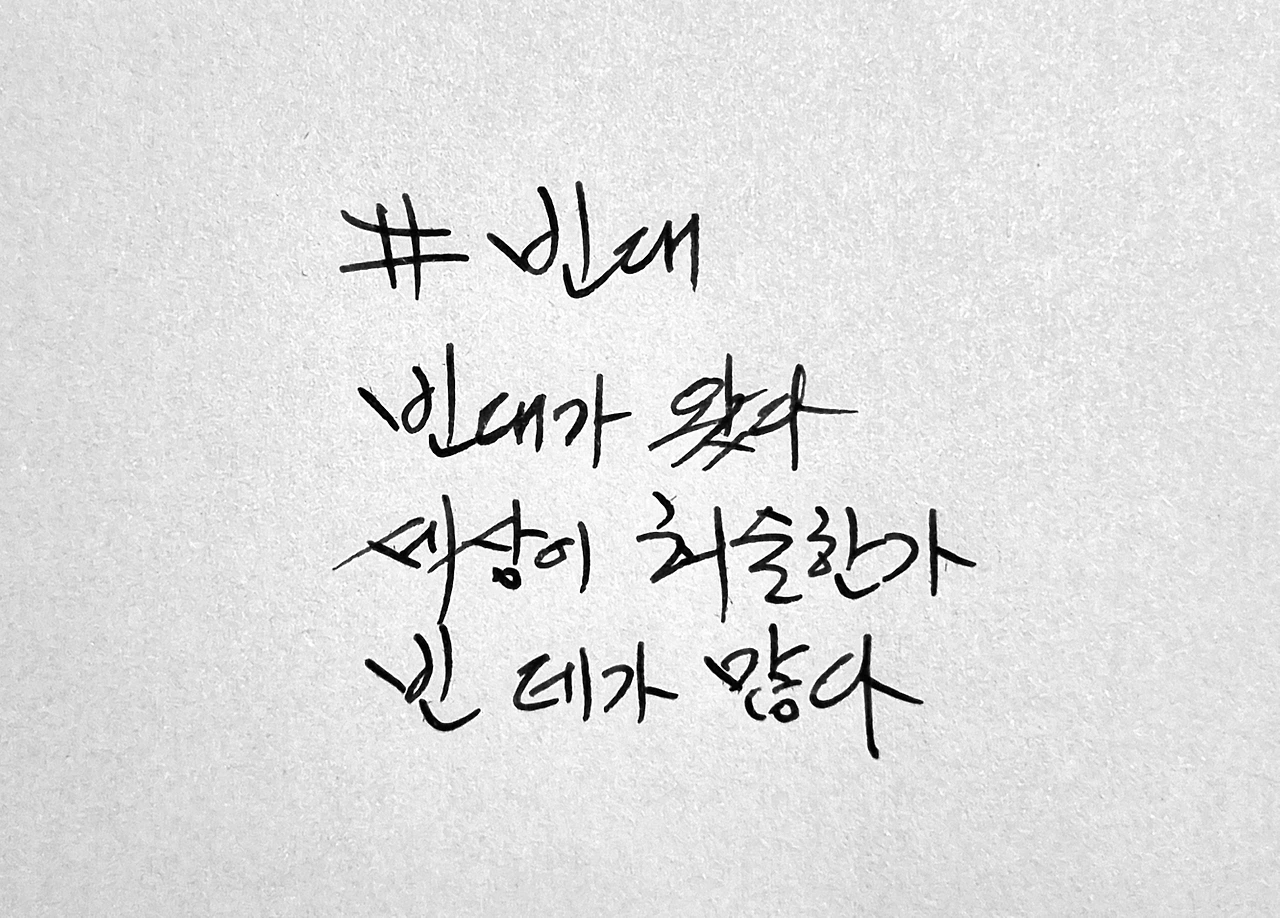 # 빈대
빈대가 왔다
세상이 허술한가
빈 데가 많다